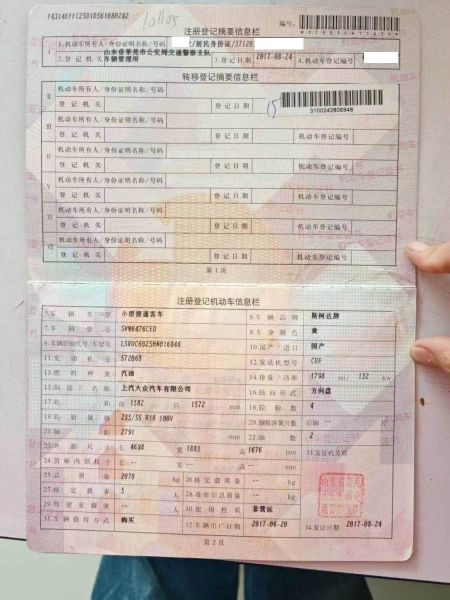 注册登记摘要信息栏
1.机动车所有人/身份证明名称/号码 /居民身份证/37120
2.登记机关 山东省莱芜市公安局交通警察支队车辆管理所 3.登记日期 2017-08-24 4.机动车登记编号
转移登记摘要信息栏
Ⅱ 机动车所有人/身份证明名称/号码
登记机关 登记日期 机动车登记编号
3100242806948
Ⅲ 机动车所有人/身份证明名称/号码
登记机关 登记日期 机动车登记编号
Ⅳ 机动车所有人/身份证明名称/号码
登记机关 登记日期 机动车登记编号
Ⅴ 机动车所有人/身份证明名称/号码
登记机关 登记日期 机动车登记编号
Ⅵ 机动车所有人/身份证明名称/号码
登记机关 登记日期 机动车登记编号
Ⅶ 机动车所有人/身份证明名称/号码
登记机关 登记日期 机动车登记编号
第1页
注册登记机动车信息栏
5.车辆类型 小型普通客车 6.车辆品牌 斯柯达牌
7.车辆型号 SVW6476CED 8.车身颜色 黄
9.车辆识别代号/车架号 10.国产/进口 国产
11.发动机号 572068 12.发动机型号 CUF
13.燃料种类 汽油 14.排量/功率 1798 ml/ 132 kw
15.制造厂名称 上汽大众汽车有限公司 16.转向形式 方向盘
17.轮距 前 1582 后 1572 mm 18.轮胎数 4
19.轮胎规格 235/55 R18 100V 20.钢板弹簧片数 后轴 --
21.轴距 2791 mm 22.轴数 2
23.外廓尺寸 长 4698 宽 1883 高 1676 mm 33.发证机关章
24.货厢内部尺寸 长 -- 宽 -- 高 -- mm
25.总质量 2070 kg 26.核定载质量 -- kg
27.核定载客 5 人 28.准牵引总质量 -- kg
29.驾驶室载客 -- 人 30.使用性质 非营运
31.车辆获得方式 购买 32.车辆出厂日期 2017-06-20 34.发证日期 2017-08-24
第2页